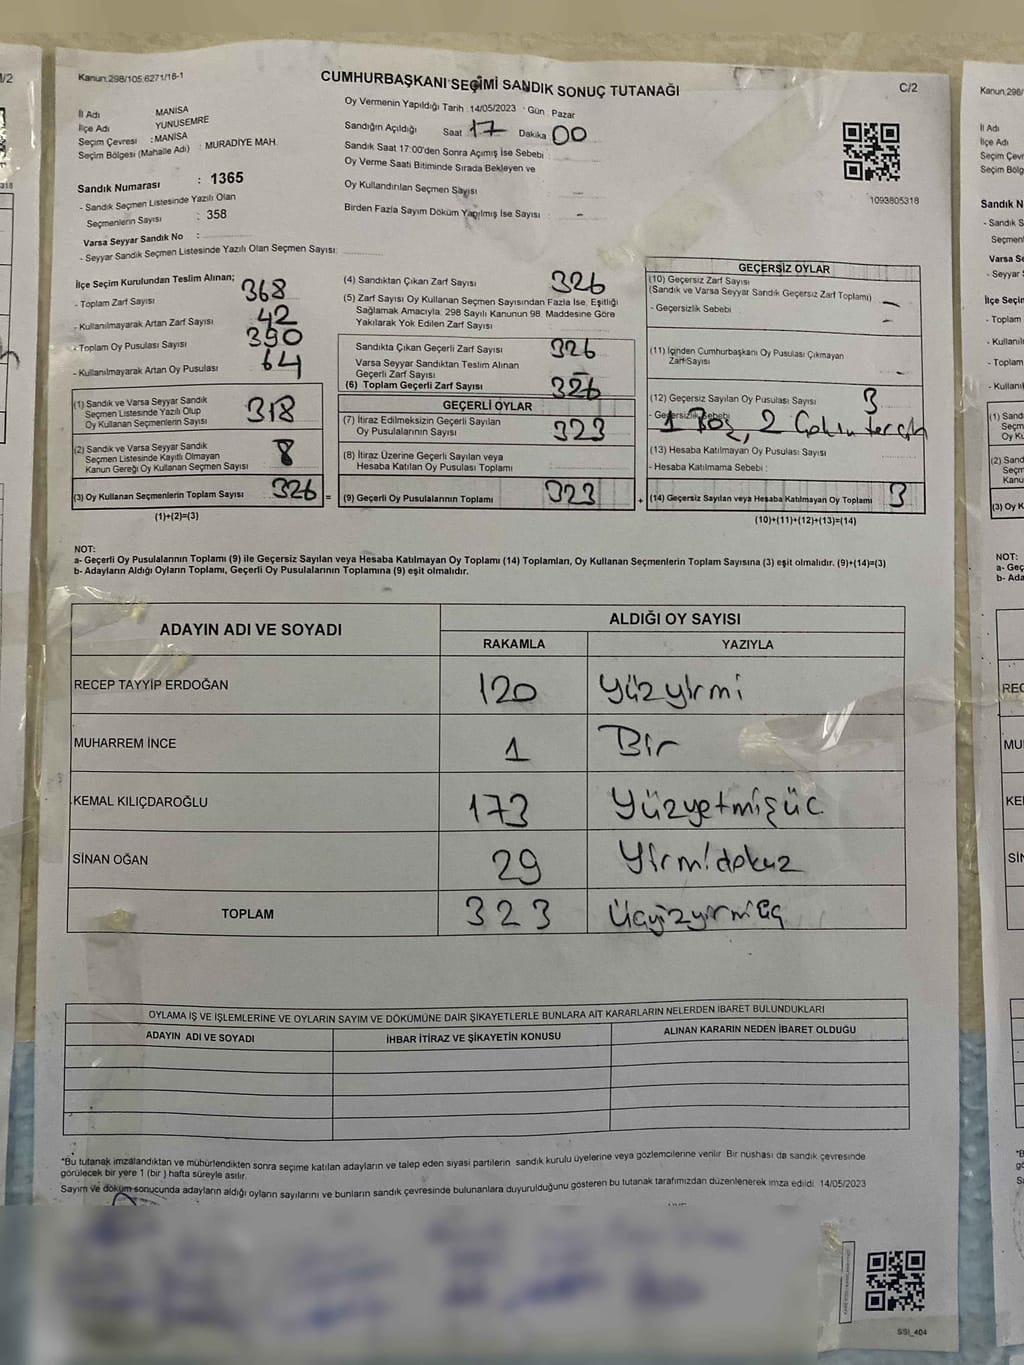 Kanun:298/105 6271/16-1
CUMHURBAŞKANI SEÇİMİ SANDIK SONUÇ TUTANAĞI
C/2
İl Adı MANİSA
İlçe Adı YUNUSEMRE
Seçim Çevresi : MANİSA
Seçim Bölgesi (Mahalle Adı) : MURADİYE MAH.
Sandık Numarası : 1365
- Sandık Seçmen Listesinde Yazılı Olan
Seçmenlerin Sayısı : 358
Varsa Seyyar Sandık No :
- Seyyar Sandık Seçmen Listesinde Yazılı Olan Seçmen Sayısı:
Oy Vermenin Yapıldığı Tarih :14/05/2023 Gün Pazar
Sandığın Açıldığı Saat 17 Dakika 00
Sandık Saat 17:00'den Sonra Açımış İse Sebebi :
Oy Verme Saati Bitiminde Sırada Bekleyen ve
Oy Kullandırılan Seçmen Sayısı -
Birden Fazla Sayım Döküm Yapılmış İse Sayısı : -
1093805318
İlçe Seçim Kurulundan Teslim Alınan;
- Toplam Zarf Sayısı 368
- Kullanılmayarak Artan Zarf Sayısı 42
- Toplam Oy Pusulası Sayısı 390
- Kullanılmayarak Artan Oy Pusulası 64
(1) Sandık ve Varsa Seyyar Sandık
Seçmen Listesinde Yazılı Olup
Oy Kullanan Seçmenlerin Sayısı 318
(2) Sandık ve Varsa Seyyar Sandık
Seçmen Listesinde Kayıtlı Olmayan
Kanun Gereği Oy Kullanan Seçmen Sayısı 8
(3) Oy Kullanan Seçmenlerin Toplam Sayısı 326 =
(1)+(2)=(3)
(4) Sandıktan Çıkan Zarf Sayısı 326
(5) Zarf Sayısı Oy Kullanan Seçmen Sayısından Fazla İse, Eşitliği
Sağlamak Amacıyla, 298 Sayılı Kanunun 98. Maddesine Göre
Yakılarak Yok Edilen Zarf Sayısı -
Sandıkta Çıkan Geçerli Zarf Sayısı 326
Varsa Seyyar Sandıktan Teslim Alınan
Geçerli Zarf Sayısı -
(6) Toplam Geçerli Zarf Sayısı 326
GEÇERLİ OYLAR
(7) İtiraz Edilmeksizin Geçerli Sayılan
Oy Pusulalarının Sayısı 323
(8) İtiraz Üzerine Geçerli Sayılan veya
Hesaba Katılan Oy Pusulası Toplamı
(9) Geçerli Oy Pusulalarının Toplamı 323 +
GEÇERSİZ OYLAR
(10) Geçersiz Zarf Sayısı
(Sandık ve Varsa Seyyar Sandık Geçersiz Zarf Toplamı) -
- Geçersizlik Sebebi -
(11) İçinden Cumhurbaşkanı Oy Pusulası Çıkmayan
Zarf Sayısı -
(12) Geçersiz Sayılan Oy Pusulası Sayısı 3
- Geçersizlik Sebebi 1 Boş, 2 Çoklu tercih
(13) Hesaba Katılmayan Oy Pusulası Sayısı
- Hesaba Katılmama Sebebi :
(14) Geçersiz Sayılan veya Hesaba Katılmayan Oy Toplamı 3
(10)+(11)+(12)+(13)=(14)
NOT:
a- Geçerli Oy Pusulalarının Toplamı (9) ile Geçersiz Sayılan veya Hesaba Katılmayan Oy Toplamı (14) Toplamları, Oy Kullanan Seçmenlerin Toplam Sayısına (3) eşit olmalıdır. (9)+(14)=(3)
b- Adayların Aldığı Oyların Toplamı, Geçerli Oy Pusulalarının Toplamına (9) eşit olmalıdır.
ADAYIN ADI VE SOYADI
ALDIĞI OY SAYISI
RAKAMLA YAZIYLA
RECEP TAYYİP ERDOĞAN 120 Yüzyirmi
MUHARREM İNCE 1 Bir
KEMAL KILIÇDAROĞLU 173 Yüzyetmişüc
SİNAN OĞAN 29 Yirmidokuz
TOPLAM 323 Üçyüzyirmiüç
OYLAMA İŞ VE İŞLEMLERİNE VE OYLARIN SAYIM VE DÖKÜMÜNE DAİR ŞİKAYETLERLE BUNLARA AİT KARARLARIN NELERDEN İBARET BULUNDUKLARI
ADAYIN ADI VE SOYADI İHBAR İTİRAZ VE ŞİKAYETİN KONUSU ALINAN KARARIN NEDEN İBARET OLDUĞU
*Bu tutanak imzalandıktan ve mühürlendikten sonra seçime katılan adayların ve talep eden siyasi partilerin sandık kurulu üyelerine veya gözlemcilerine verilir. Bir nüshası da sandık çevresinde
görülecek bir yere 1 (bir) hafta süreyle asılır.
Sayım ve döküm sonucunda adayların aldığı oyların sayılarını ve bunların sandık çevresinde bulunanlara duyurulduğunu gösteren bu tutanak tarafımızdan düzenlenerek imza edildi. 14/05/2023
SSI_404